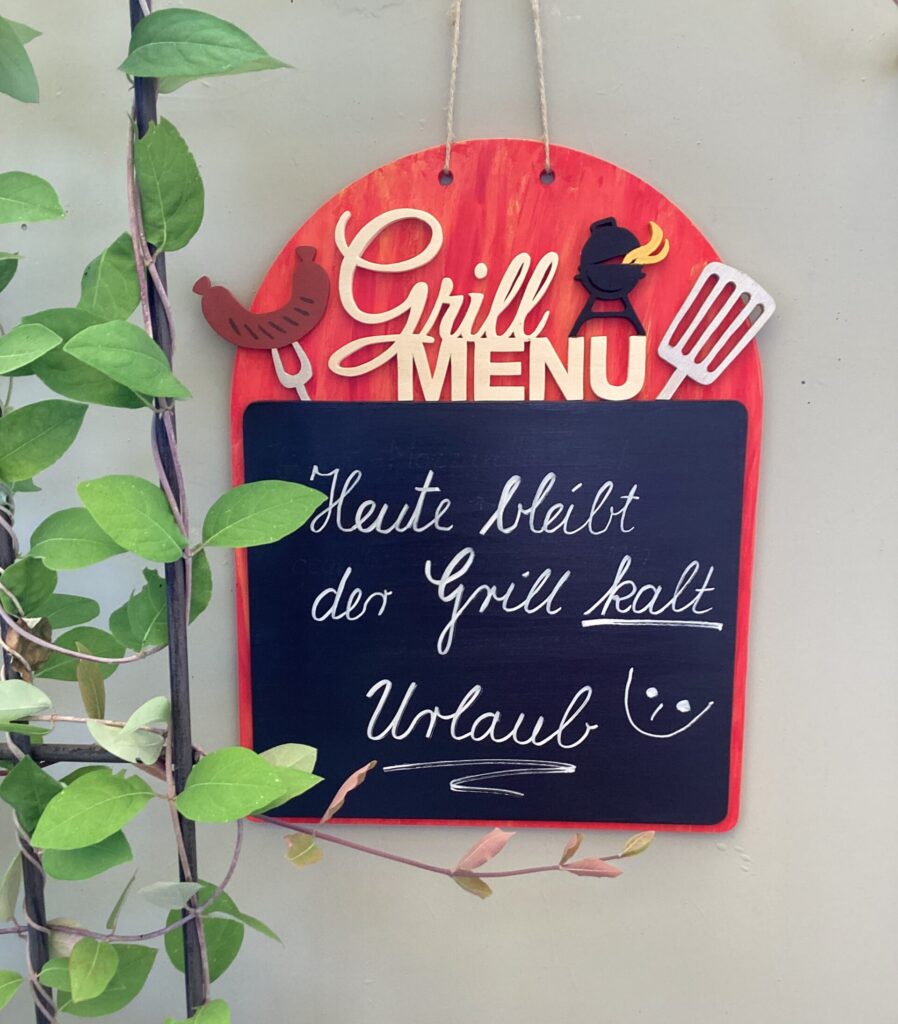 Grill
MENU
Heute bleibt
der Grill kalt
Urlaub